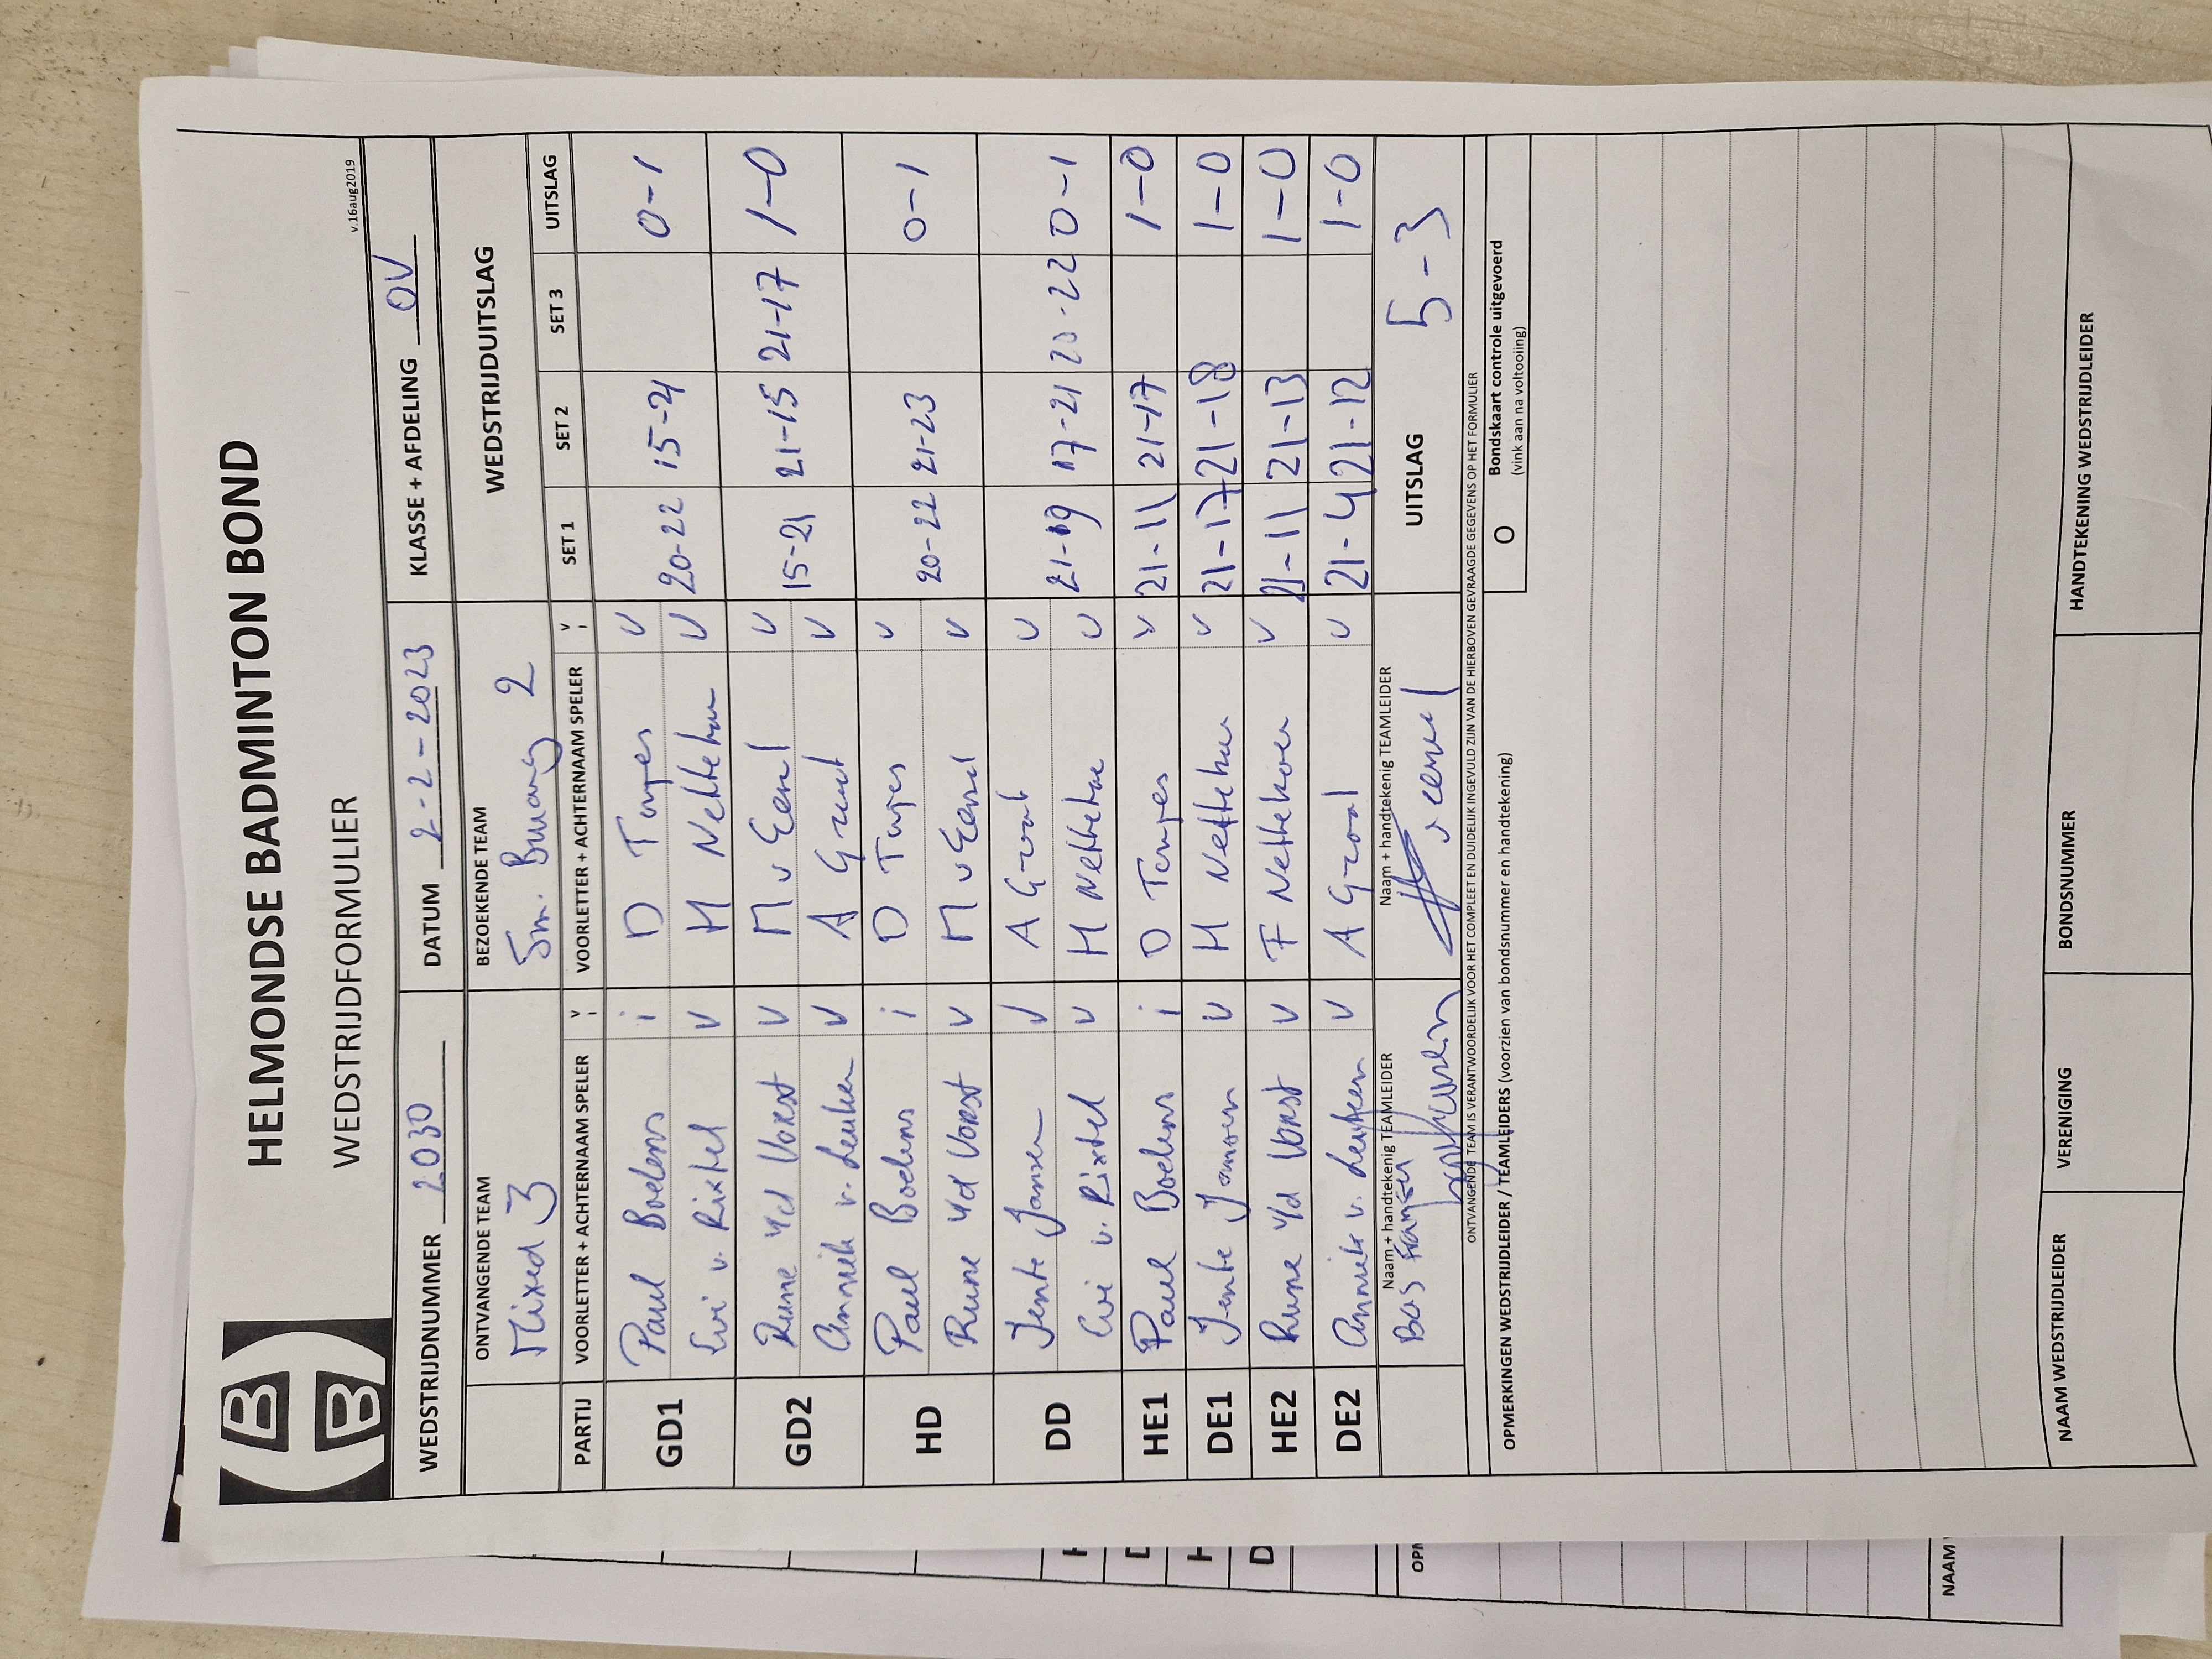 HELMONDSE BADMINTON BOND
WEDSTRIJDFORMULIER
v.16aug2019
WEDSTRIJDNUMMER 2030 DATUM 2-2-2023 KLASSE + AFDELING OV
ONTVANGENDE TEAM BEZOEKENDE TEAM WEDSTRIJDUITSLAG
Mixed 3 2
PARTIJ VOORLETTER + ACHTERNAAM SPELER V i VOORLETTER + ACHTERNAAM SPELER V i SET 1 SET 2 SET 3 UITSLAG
GD1 Paul Boelens i D v 20-22 15-21 0-1
Evi v. Rixtel v M v
GD2 Rune v/d Vorst v M v v 15-21 21-15 21-17 1-0
Anniek v. v A v
HD Paul Boelens i D v 20-22 21-23 0-1
Rune v/d Vorst v M v v
DD Jente Jansen v A Graat v 21-19 17-21 20-22 0-1
Evi v. Rixtel v M v
HE1 Paul Boelens i D v 21-11 21-17 1-0
DE1 Jente Jansen v M v 21-17 21-18 1-0
HE2 Rune v/d Vorst v F Nettekoven v 21-11 21-13 1-0
DE2 Anniek v. v A Graat v 21-4 21-12 1-0
Naam + handtekenig TEAMLEIDER Naam + handtekenig TEAMLEIDER UITSLAG 5-3
Bas
ONTVANGENDE TEAM IS VERANTWOORDELIJK VOOR HET COMPLEET EN DUIDELIJK INGEVULD ZIJN VAN DE HIERBOVEN GEVRAAGDE GEGEVENS OP HET FORMULIER
OPMERKINGEN WEDSTRIJDLEIDER / TEAMLEIDERS (voorzien van bondsnummer en handtekening)
O Bondskaart controle uitgevoerd
(vink aan na voltooiing)
NAAM WEDSTRIJDLEIDER VERENIGING BONDSNUMMER HANDTEKENING WEDSTRIJDLEIDER
OPM
NAAM